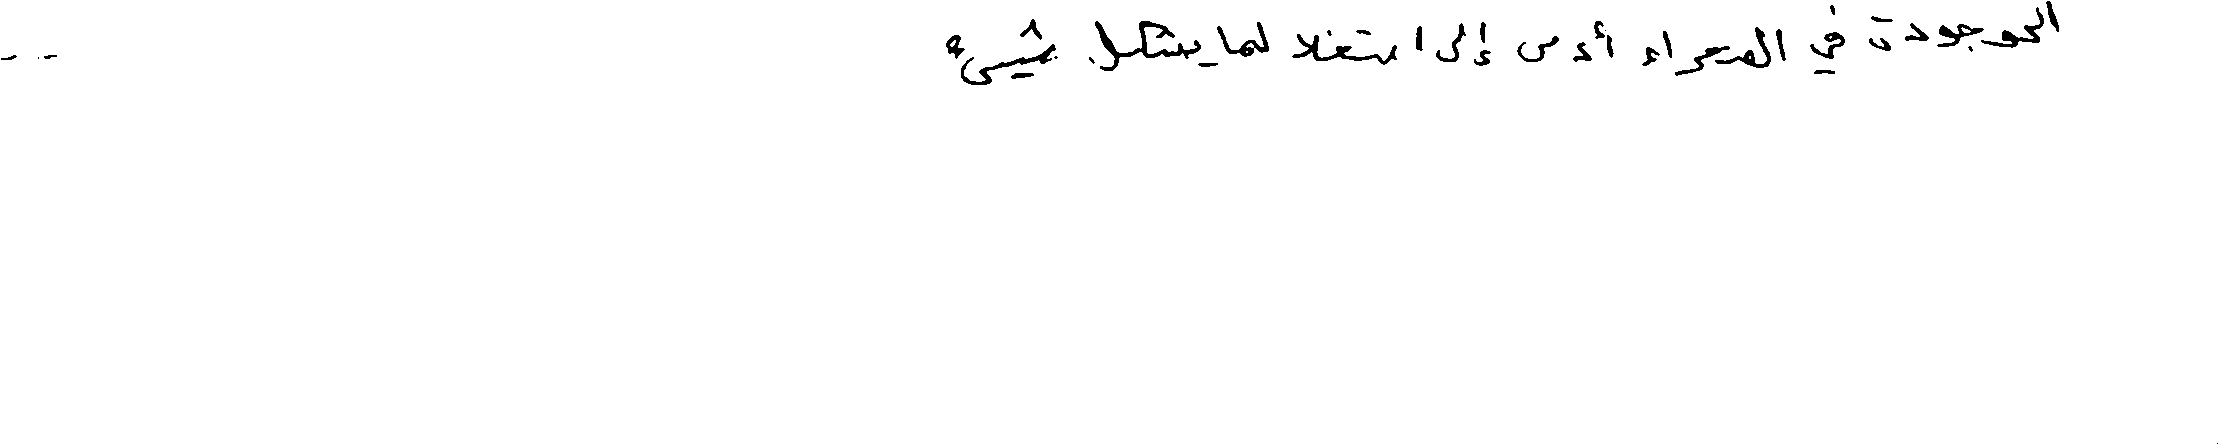 الموجودة في الصحراء أدى إلى استغلالها بشكل سيء